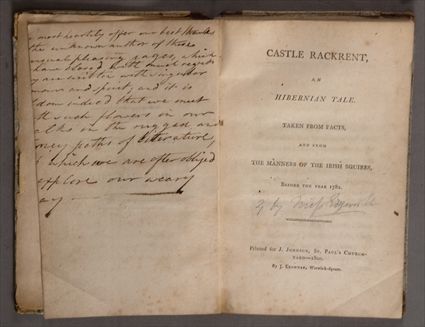 most heartily offer our best thanks
the unknown author of these
unusual pleasing pages, which
have closed with much regret
are written with singular
humour and spirit; and it is
dom indeed that we meet
th such flowers in our
alks in the rugged and
orny paths of literature,
which we are often obliged
explore our weary
ay
CASTLE RACKRENT,
AN
HIBERNIAN TALE.
TAKEN FROM FACTS,
AND FROM
THE MANNERS OF THE IRISH SQUIRES,
BEFORE THE YEAR 1782.
by Miss Edgeworth
Printed for J. JOHNSON, ST. PAUL'S CHURCH-
YARD—1800.
By J. CROWDER, Warwick-square.